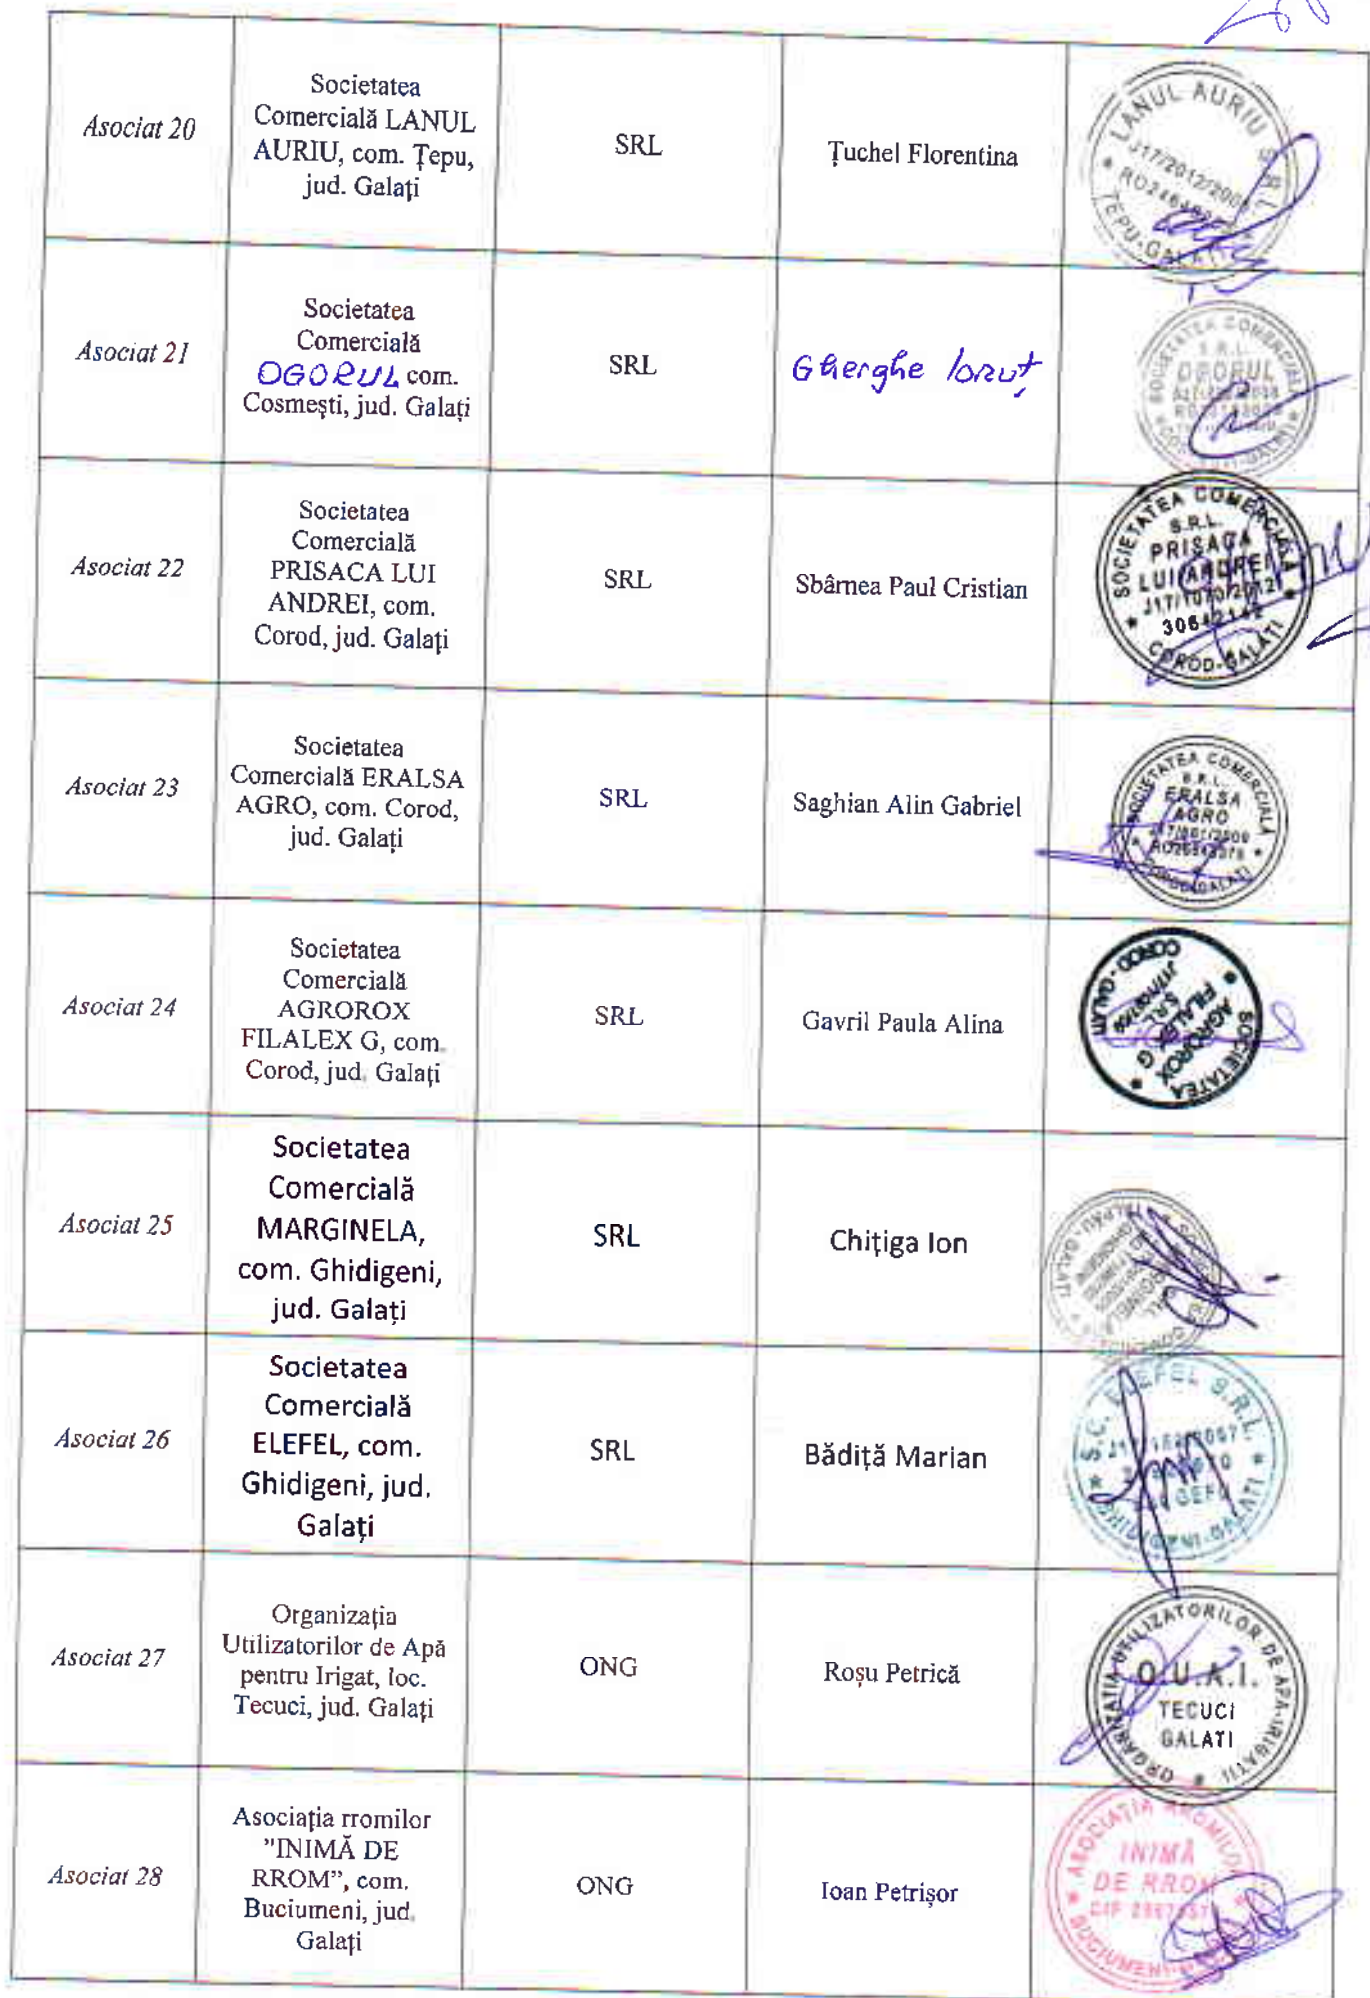 Asociat 20
Societatea
Comercială LANUL
AURIU, com. Țepu,
jud. Galați
SRL
Țuchel Florentina
LANUL AURIU S.R.L.
J17/2012/200
ȚEPU-GALAȚI
Asociat 21
Societatea
Comercială
OGORUL com.
Cosmești, jud. Galați
SRL
Gherghe Ionuț
SOCIETATEA COMERCIALĂ
S.R.L.
OGORUL
Asociat 22
Societatea
Comercială
PRISACA LUI
ANDREI, com.
Corod, jud. Galați
SRL
Sbârnea Paul Cristian
SOCIETATEA COMERCIALĂ
S.R.L.
PRISACA
LUI ANDREI
J17/1070/2012
30642142
COROD-GALAȚI
Asociat 23
Societatea
Comercială ERALSA
AGRO, com. Corod,
jud. Galați
SRL
Saghian Alin Gabriel
SOCIETATEA COMERCIALĂ
S.R.L.
ERALSA
AGRO
Asociat 24
Societatea
Comercială
AGROROX
FILALEX G, com.
Corod, jud. Galați
SRL
Gavril Paula Alina
SOCIETATEA
AGROROX
FILALEX G
S.R.L.
COROD - GALATI
Asociat 25
Societatea
Comercială
MARGINELA,
com. Ghidigeni,
jud. Galați
SRL
Chițiga Ion
Asociat 26
Societatea
Comercială
ELEFEL, com.
Ghidigeni, jud.
Galați
SRL
Bădiță Marian
S.C. ELEFEL S.R.L.
GHIDIGENI-GALATI
Asociat 27
Organizația
Utilizatorilor de Apă
pentru Irigat, loc.
Tecuci, jud. Galați
ONG
Roșu Petrică
ORGANIZATIA UTILIZATORILOR DE APA-IRIGATII
O.U.A.I.
TECUCI
GALATI
Asociat 28
Asociația rromilor
”INIMĂ DE
RROM”, com.
Buciumeni, jud.
Galați
ONG
Ioan Petrișor
ASOCIAȚIA RROMILOR
INIMĂ
DE RROM
CIF
BUCIUMENI